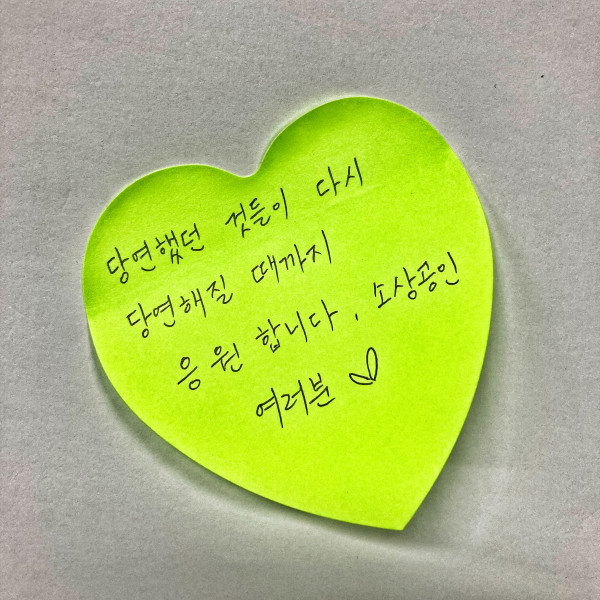 당연했던 것들이 다시
당연해질 때까지
응원 합니다. 소상공인
여러분